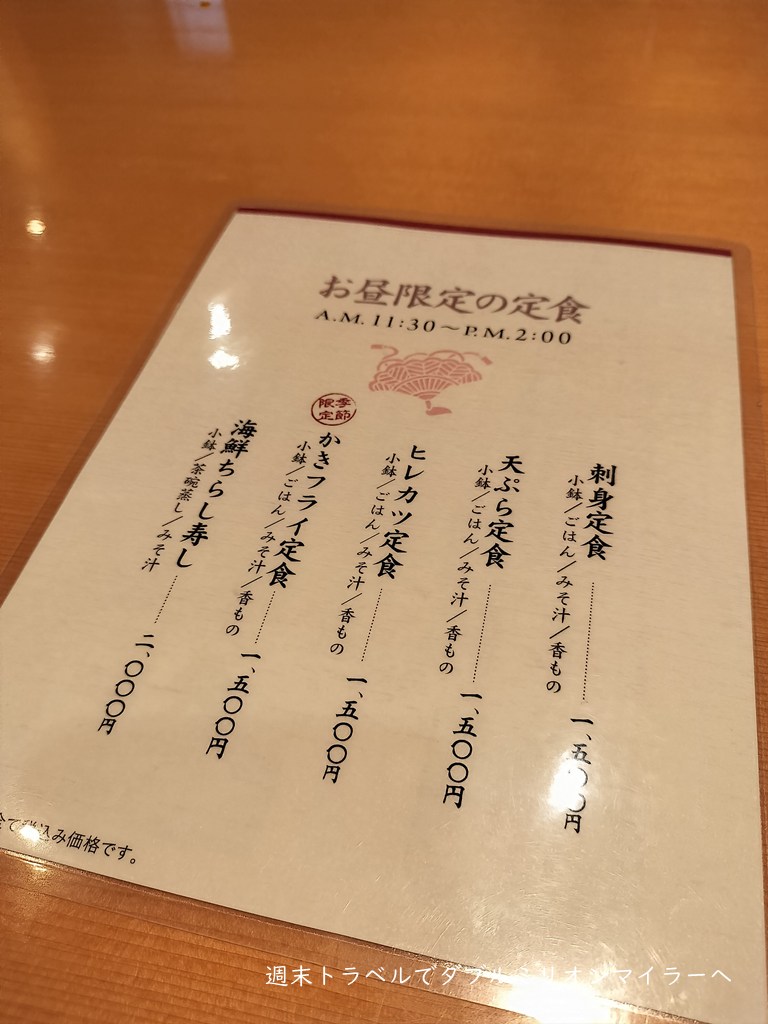 お昼限定の定食
A.M.11:30～P.M.2:00
刺身定食
小鉢／ごはん／みそ汁／香もの
一、五〇〇円
天ぷら定食
小鉢／ごはん／みそ汁／香もの
一、五〇〇円
ヒレカツ定食
小鉢／ごはん／みそ汁／香もの
一、五〇〇円
季節
限定
かきフライ定食
小鉢／ごはん／みそ汁／香もの
一、五〇〇円
海鮮ちらし寿し
小鉢／茶碗蒸し／みそ汁
二、〇〇〇円
全て税込み価格です。
週末トラベルでダブルミリオンマイラーへ